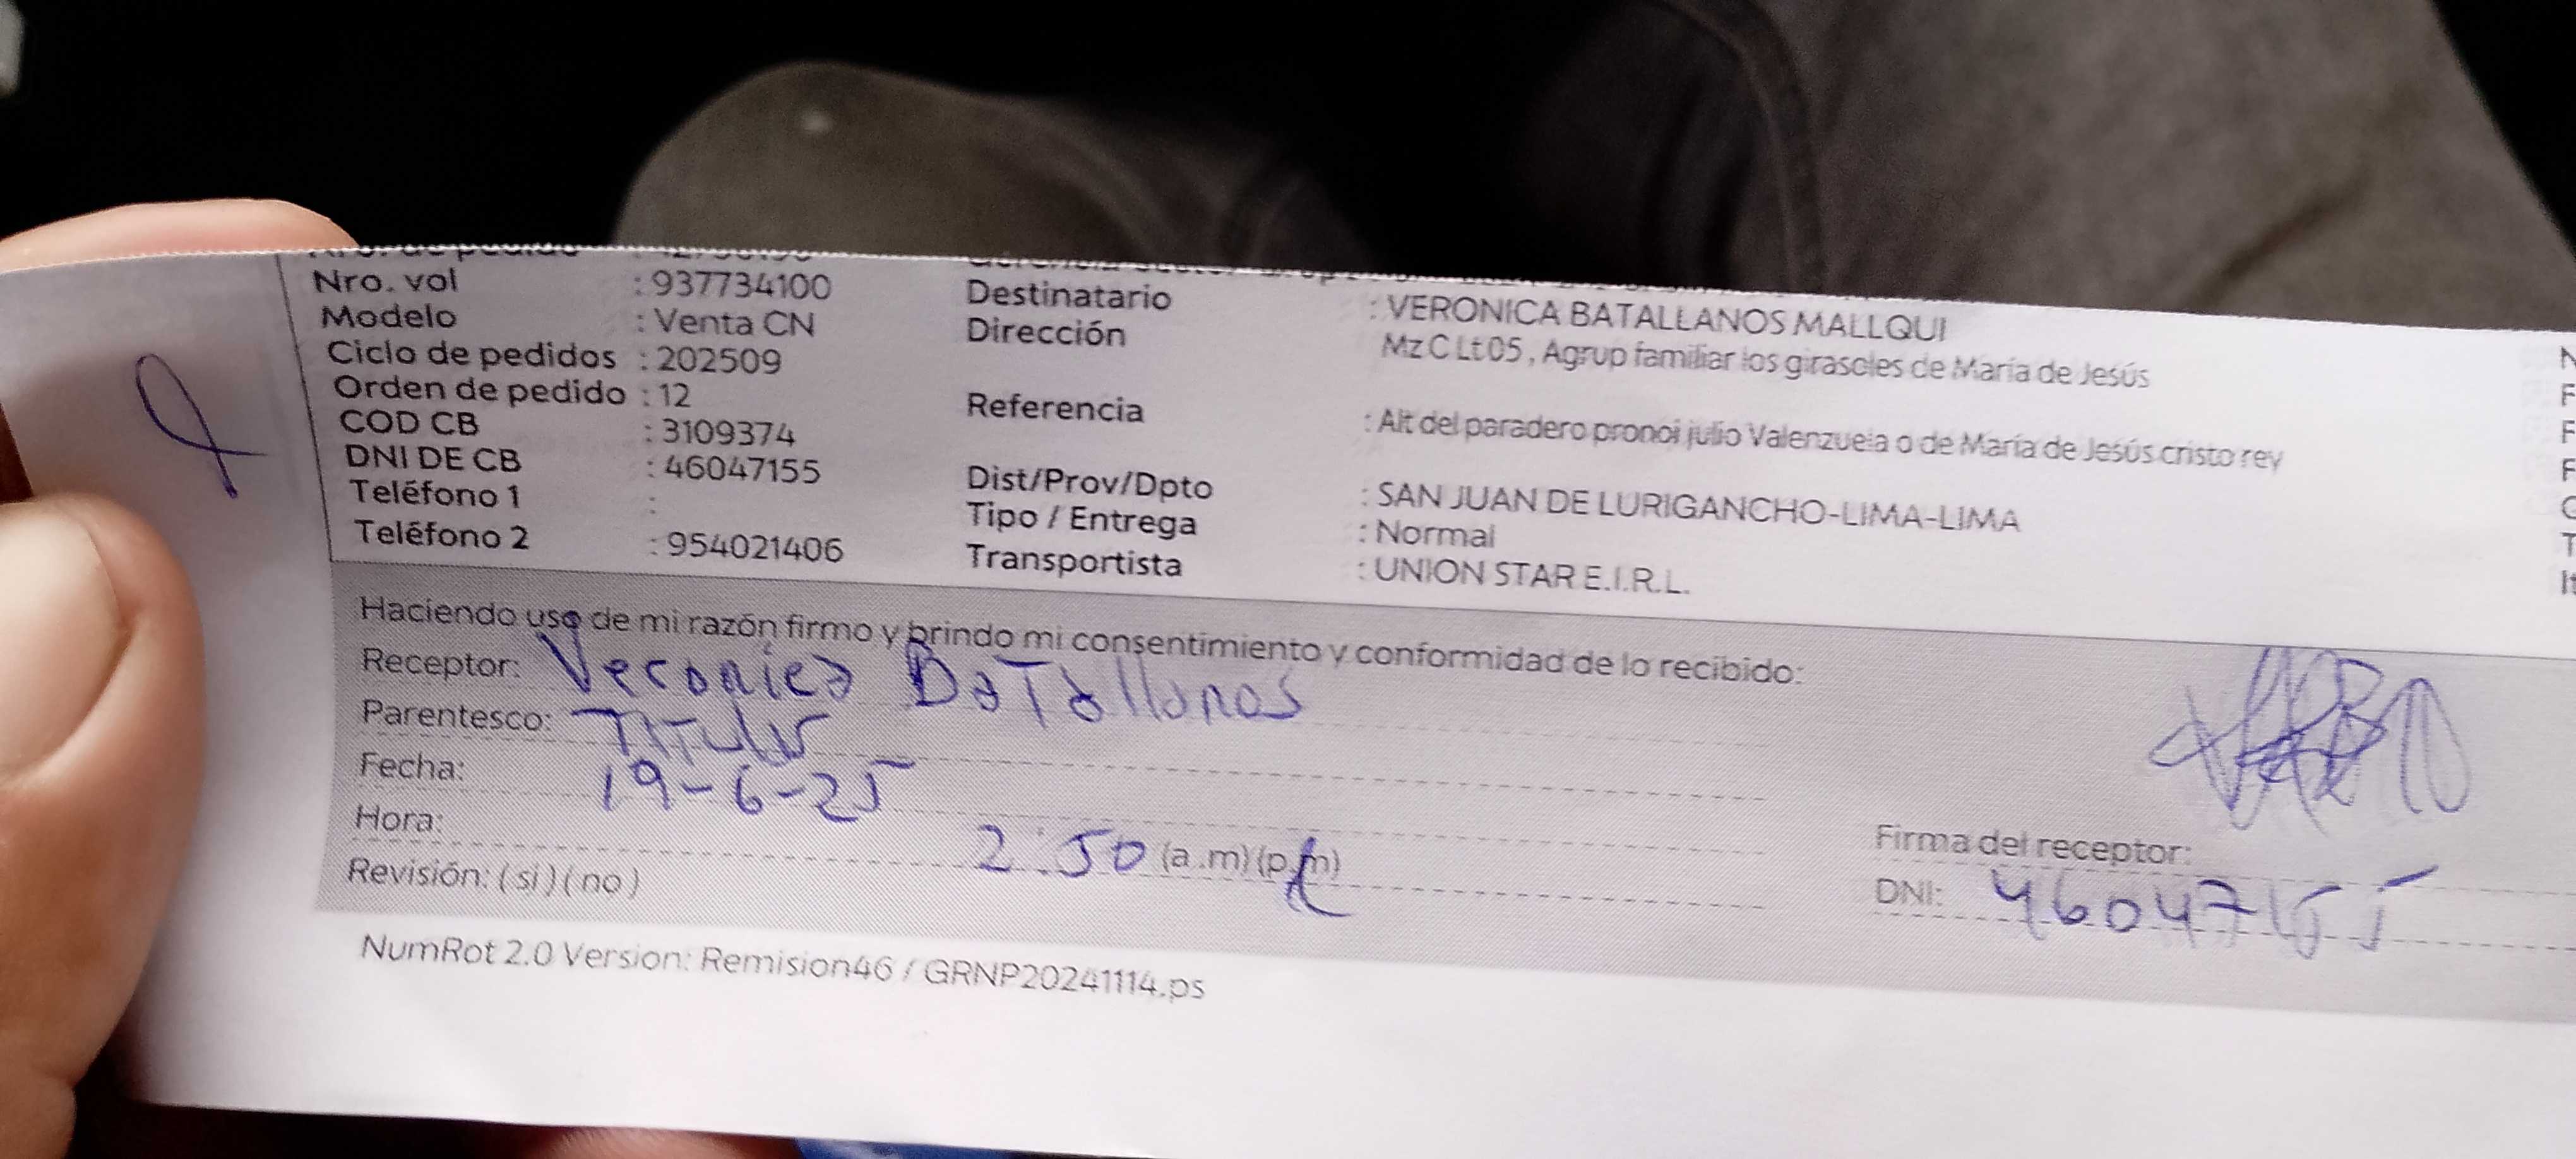 Nro. de pedido
Nro. vol : 937734100
Modelo : Venta CN
Ciclo de pedidos : 202509
Orden de pedido : 12
COD CB : 3109374
DNI DE CB : 46047155
Teléfono 1 :
Teléfono 2 : 954021406
Destinatario : VERONICA BATALLANOS MALLQUI
Dirección Mz C Lt 05 , Agrup familiar los girasoles de María de Jesús
Referencia : Alt del paradero pronoi julio Valenzuela o de María de Jesús cristo rey
Dist/Prov/Dpto : SAN JUAN DE LURIGANCHO-LIMA-LIMA
Tipo / Entrega : Normal
Transportista : UNION STAR E.I.R.L.
Haciendo uso de mi razón firmo y brindo mi consentimiento y conformidad de lo recibido:
Receptor: Veronica Batallanos
Parentesco: Titular
Fecha: 19-6-25
Hora: 2:50 (a.m)(p.m)
Revisión: ( si ) ( no )
Firma del receptor:
DNI: 46047155
NumRot 2.0 Version: Remision46 / GRNP20241114.ps